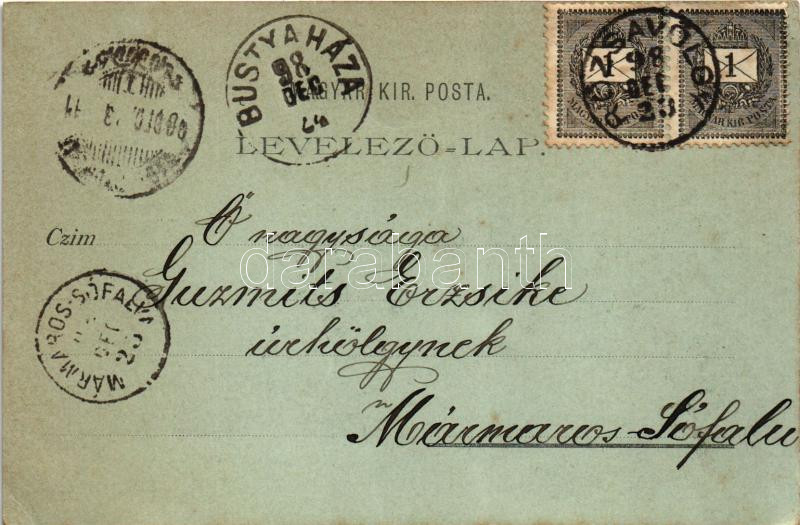 BUSTYAHÁZA
98
DEC
24
MAGYAR KIR. POSTA.
LEVELEZŐ-LAP.
98
DEC
23
1
1
MAGYAR KIR. POSTA
Czim
Ő nagysága
Guzmits Erzsike
úrhölgynek
Mármaros-Sófalu
MÁRMAROS-SÓFALVA
DEC
25
darabanth